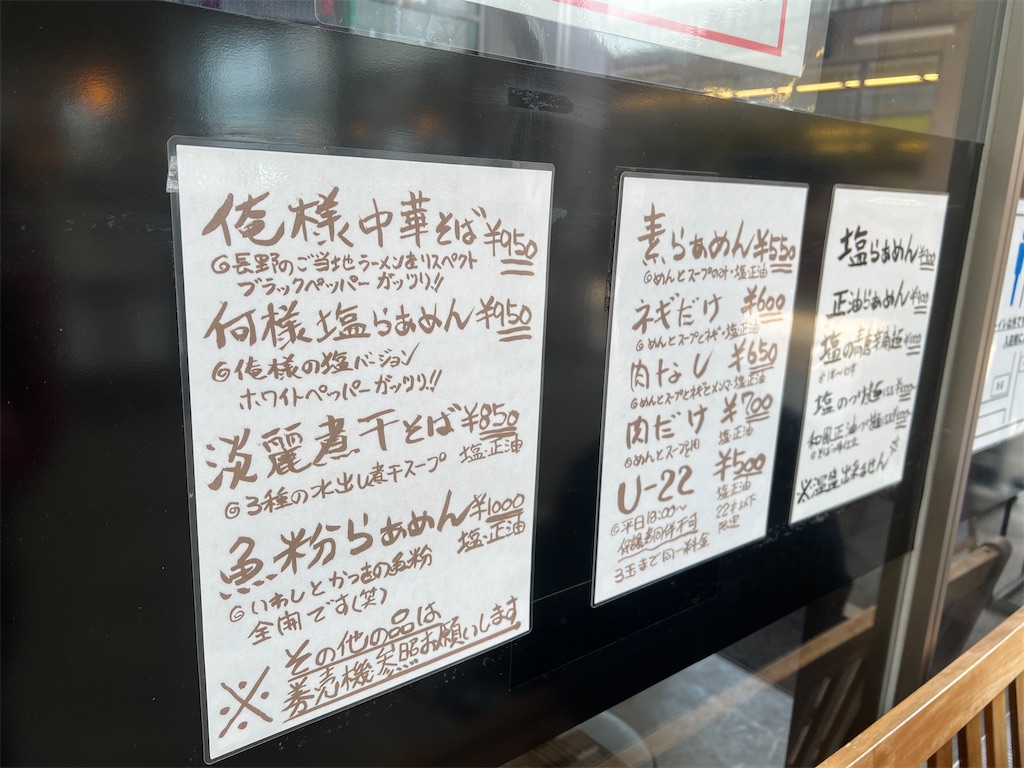 俺様中華そば ¥950
◎長野のご当地ラーメンをリスペクト
ブラックペッパーガッツリ!!
何様塩らぁめん ¥950
◎俺様の塩バージョン
ホワイトペッパーガッツリ!!
淡麗煮干そば ¥850
塩・正油
◎3種の水出し煮干スープ
魚粉らぁめん ¥1000
塩・正油
◎いわしとかつおの魚粉
全開です(笑)
※その他の品は
券売機参照お願いします
素らぁめん ¥550
◎めんとスープのみ・塩・正油
ネギだけ ¥600
◎めんとスープとネギ・塩・正油
肉なし ¥650
◎めんとスープとネギとメンマ・塩・正油
肉だけ ¥700
◎めんとスープと肉 塩・正油
U-22 ¥500
塩・正油
22才以下
限定
◎平日18:00〜
保護者同伴不可
3玉まで同一料金
塩らぁめん
正油らぁめん
塩のつけ麺
和風正油つけ麺
出来ません